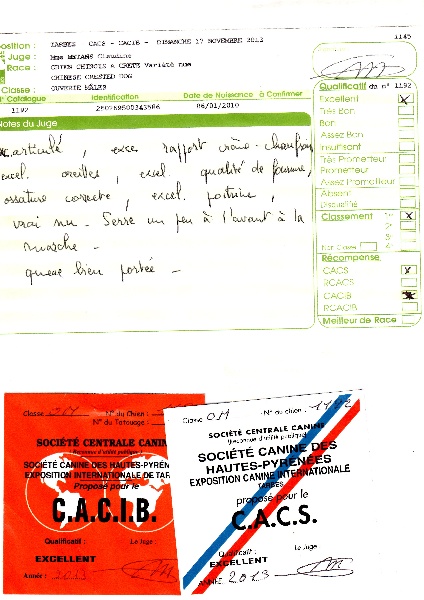 osition : TARBES CACS - CACIB - DIMANCHE 17 NOVEMBRE 2013
1145
Juge : Mme MULANS Claudine
Race : CHIEN CHINOIS A CRETE Variété nue
CHINESE CRESTED DOG
Classe : OUVERTE MÂLES
N° Catalogue Identification Date de Naissance à Confirmer
1192 06/01/2010
Notes du Juge
articulé, exce rapport crâne-chanfrein
excel. oreilles, excel. qualité de fourrure,
ossature correcte, excel. poitrine,
vrai nu. Serre un peu à l'avant à la
marche -
queue bien portée -
Qualificatif du n° 1192
Excellent X
Très Bon
Bon
Assez Bon
Insuffisant
Très Prometteur
Prometteur
Assez Prometteur
Absent
Disqualifié
Classement 1er X
2e
3e
4e
Non Classé
Récompense
CACS X
RCACS
CACIB X
RCACIB
Meilleur de Race
Classe : OM N° du Chien :
N° du Tatouage :
SOCIÉTÉ CENTRALE CANINE
(Reconnue d'utilité publique)
SOCIÉTÉ CANINE DES HAUTES-PYRÉN
EXPOSITION INTERNATIONALE DE TAR
Proposé pour le
C.A.C.I.B.
Qualificatif : Le Juge :
EXCELLENT
Année : 2013
Classe OM N° du chien : 1192
SOCIÉTÉ CENTRALE CANINE
(Reconnue d'utilité publique)
SOCIÉTÉ CANINE DES
HAUTES-PYRÉNÉES
EXPOSITION CANINE INTERNATIONALE
TARBES
proposé pour le
C.A.C.S.
Qualificatif : Le Juge
EXCELLENT
ANNÉE 2013